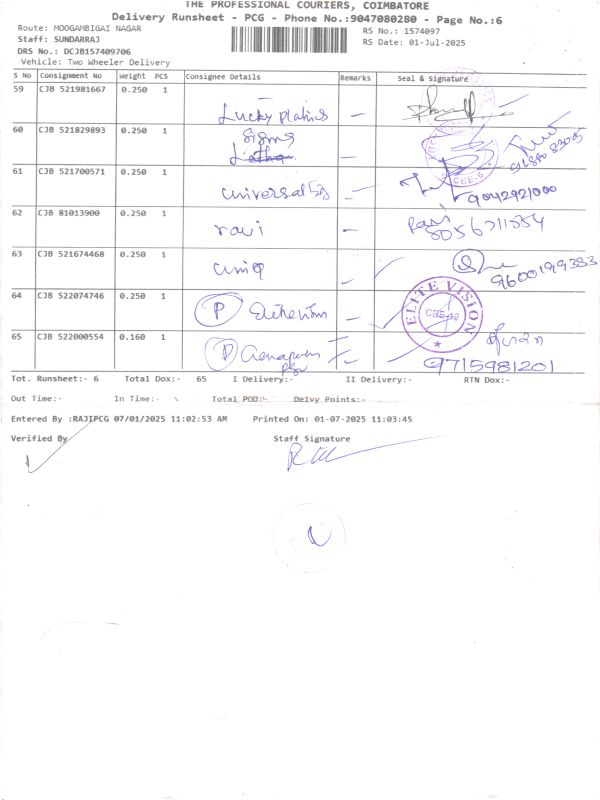 THE PROFESSIONAL COURIERS, COIMBATORE
Delivery Runsheet - PCG - Phone No.:9047080280 - Page No.:6
Route: MOOGAMBIGAI NAGAR
RS No.: 1574097
Staff: SUNDARRAJ
RS Date: 01-Jul-2025
DRS No.: DCJB157409706
Vehicle: Two Wheeler Delivery
S No Consignment No Weight PCS Consignee Details Remarks Seal & Signature
59 CJB 521981667 0.250 1
Lucky
60 CJB 521829893 0.250 1
Sigma
61 CJB 521700571 0.250 1
universal
9042921000
62 CJB 81013900 0.250 1
ravi
Ravi
8056711554
63 CJB 521674468 0.250 1
uniq
9600199383
64 CJB 522074746 0.250 1
P
ELITE VISION
CBE-12
65 CJB 522000554 0.160 1
9715981201
Tot. Runsheet:- 6 Total Dox:- 65 I Delivery:- II Delivery:- RTN Dox:-
Out Time:- In Time:- Total POD:- Delvy Points:-
Entered By :RAJIPCG 07/01/2025 11:02:53 AM Printed On: 01-07-2025 11:03:45
Verified By Staff Signature